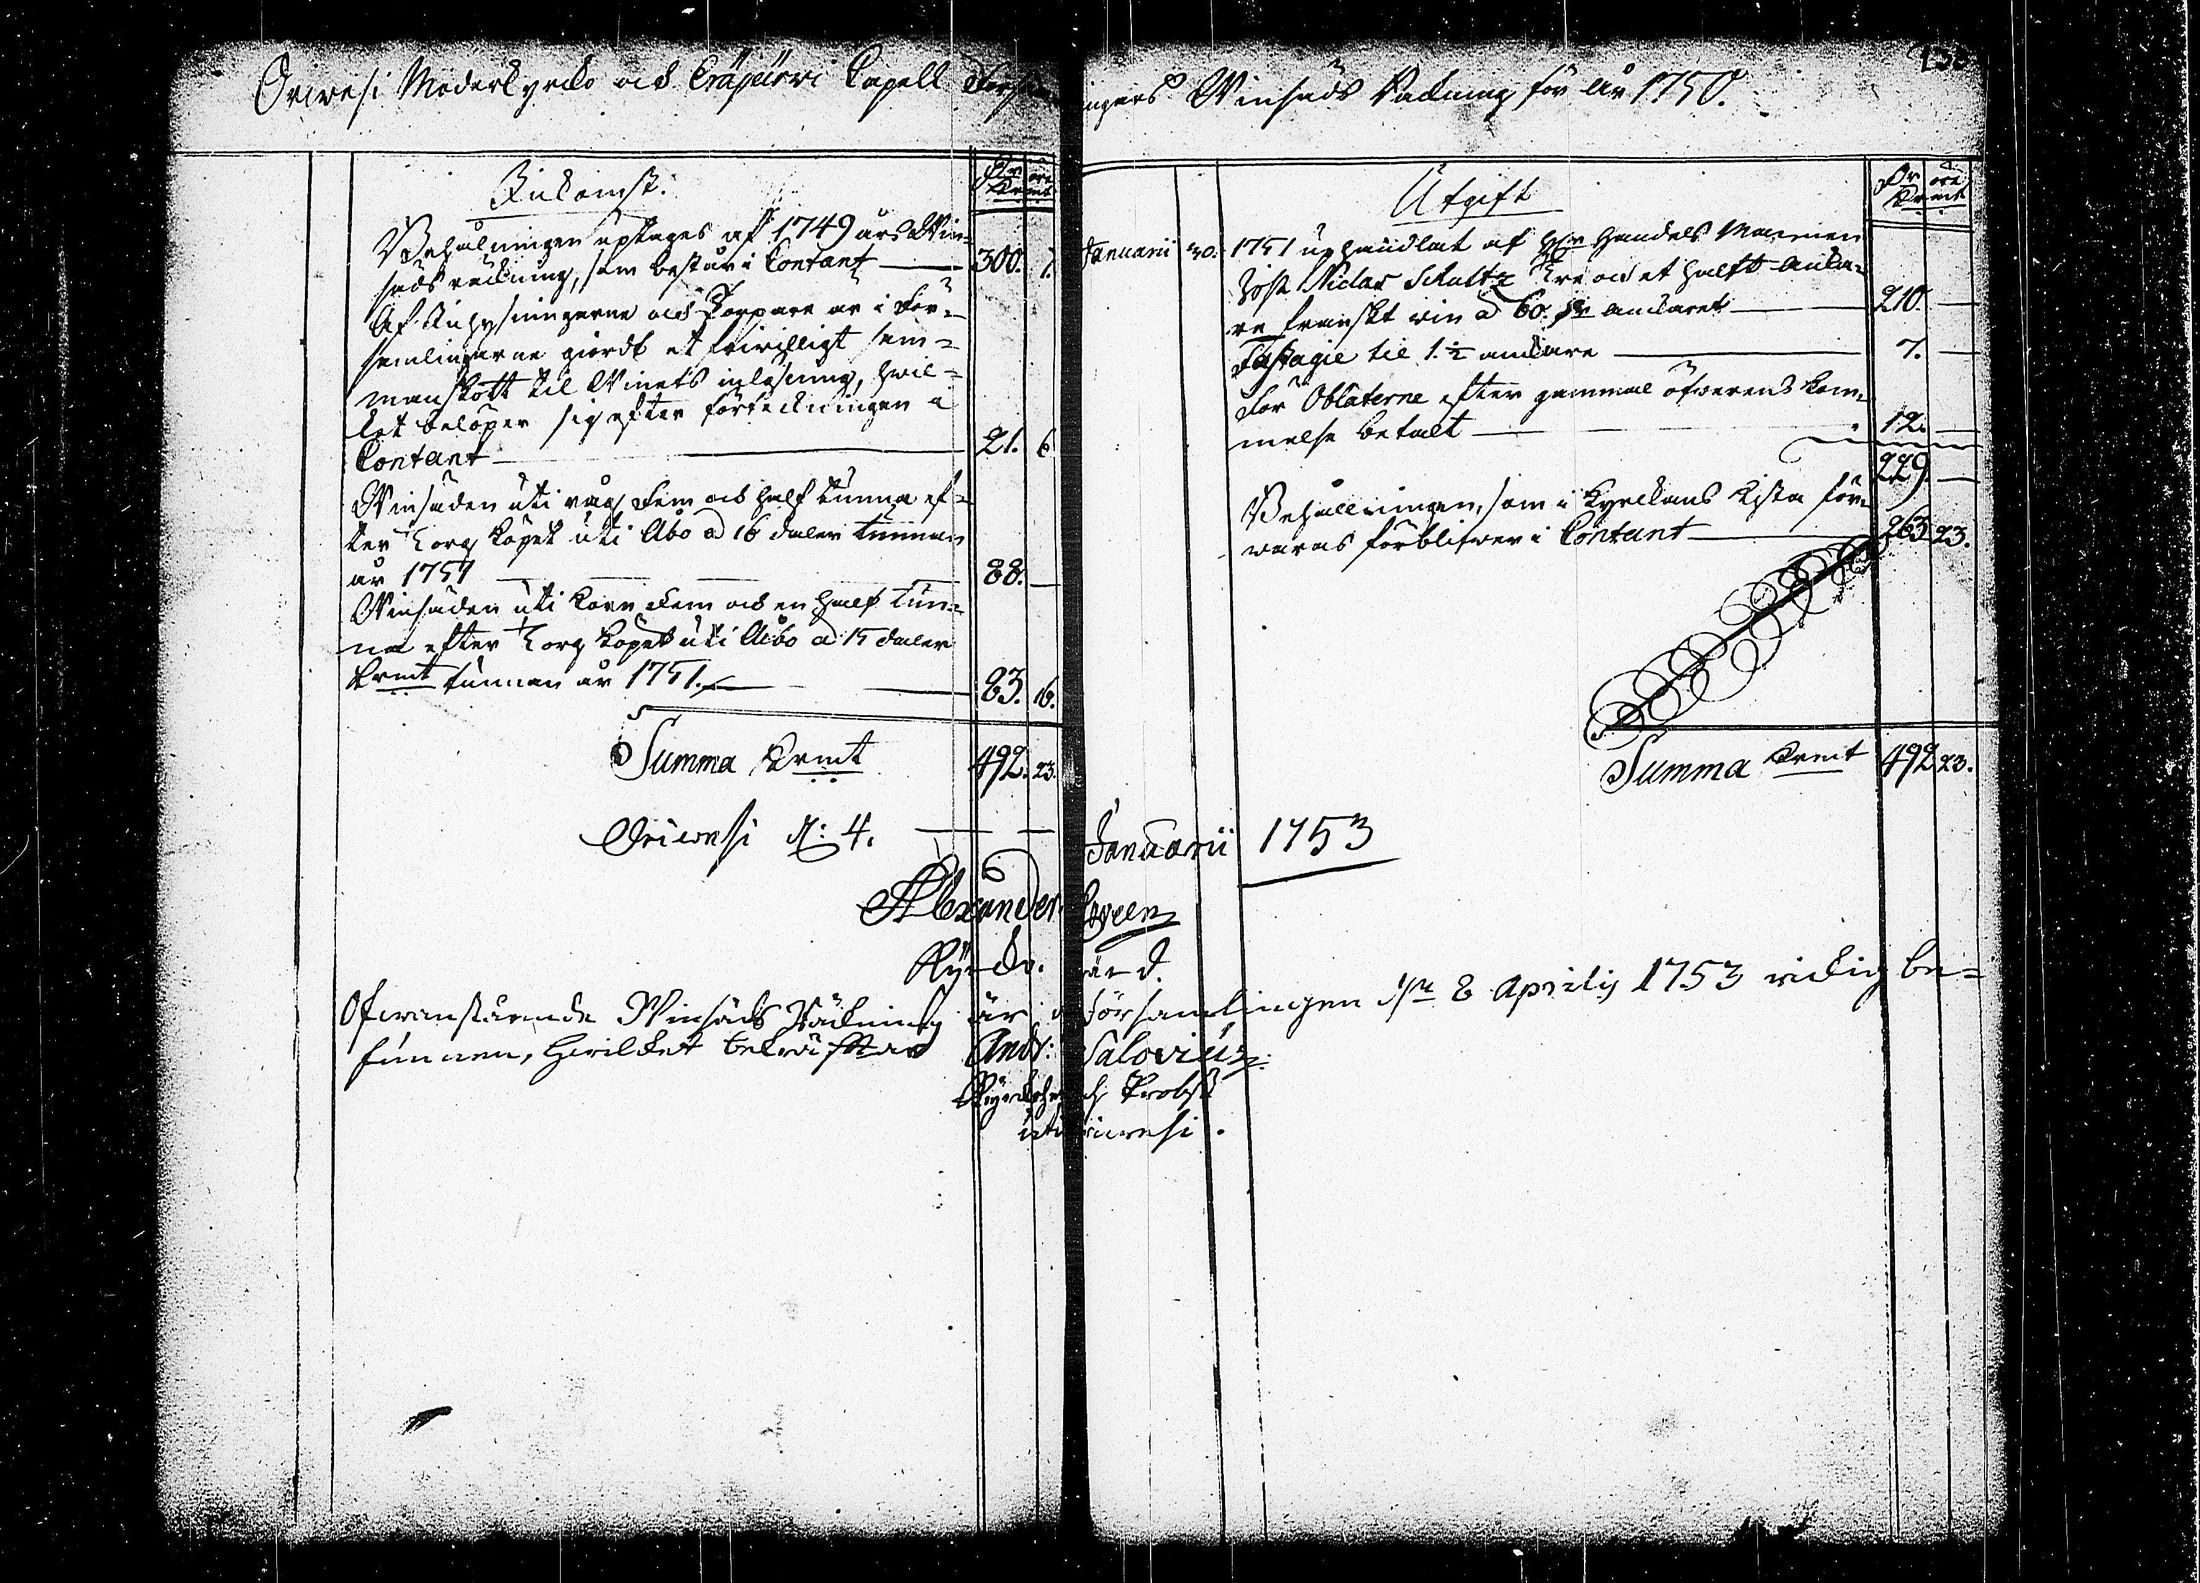 Oriwesi Moderkyrcko och Eräjärwi Capell Församlingars Winsäds Räckning för år 1750.
132
Inkomst.
Dlr öre
Krmt
Behållningen uptages af 1749 års Win-
säds räckning, som består i Contant — 300. 7.
Af Inhysningarne och Torpare är i För-
samlingarne giordt et frivilligt sam-
manskott til Winets inlösning, hvil-
ket belöper sig efter förteckningen i
Contant — 21. 6
Winsäden uti råg, Fem och half tunna ef-
ter Torg köpet uti Åbo a 16 daler tunnan
år 1751 — 88. —
Winsäden uti korn Fem och en half tun-
na efter Torg köpet uti Åbo a 15 daler
Krmt tunnan år 1751. — 83. 16.
Summa Krmt 492. 23.
Utgift
Dlr öre
Krmt
Januarii 30. 1751 uphandlat af Hr Handels Mannen
Jost Niclas Schultz Tre och et halft Anka-
re franskt vin a 60. pr anckaret — 210. —
Fastagie til 1. ½ anckare — 7. —
För Oblaterne efter gammal öfwerens kom-
melse betalt — 12. —
229. —
Behållningen, som i Kyrckans kista för-
waras förblifwer i Contant — 263 23.
Summa Krmt 492 23.
Oriwesi d: 4. — — Januarii 1753
Alexander
Kyrcko. värd.
Ofwanstående Winsäds Räckning är i Församlingen den 8 Aprilis 1753 richtig be-
funnen, hwilcket bekräfftas And: Salovius.
Kyrckoherde och Probst
uti Oriwesi.